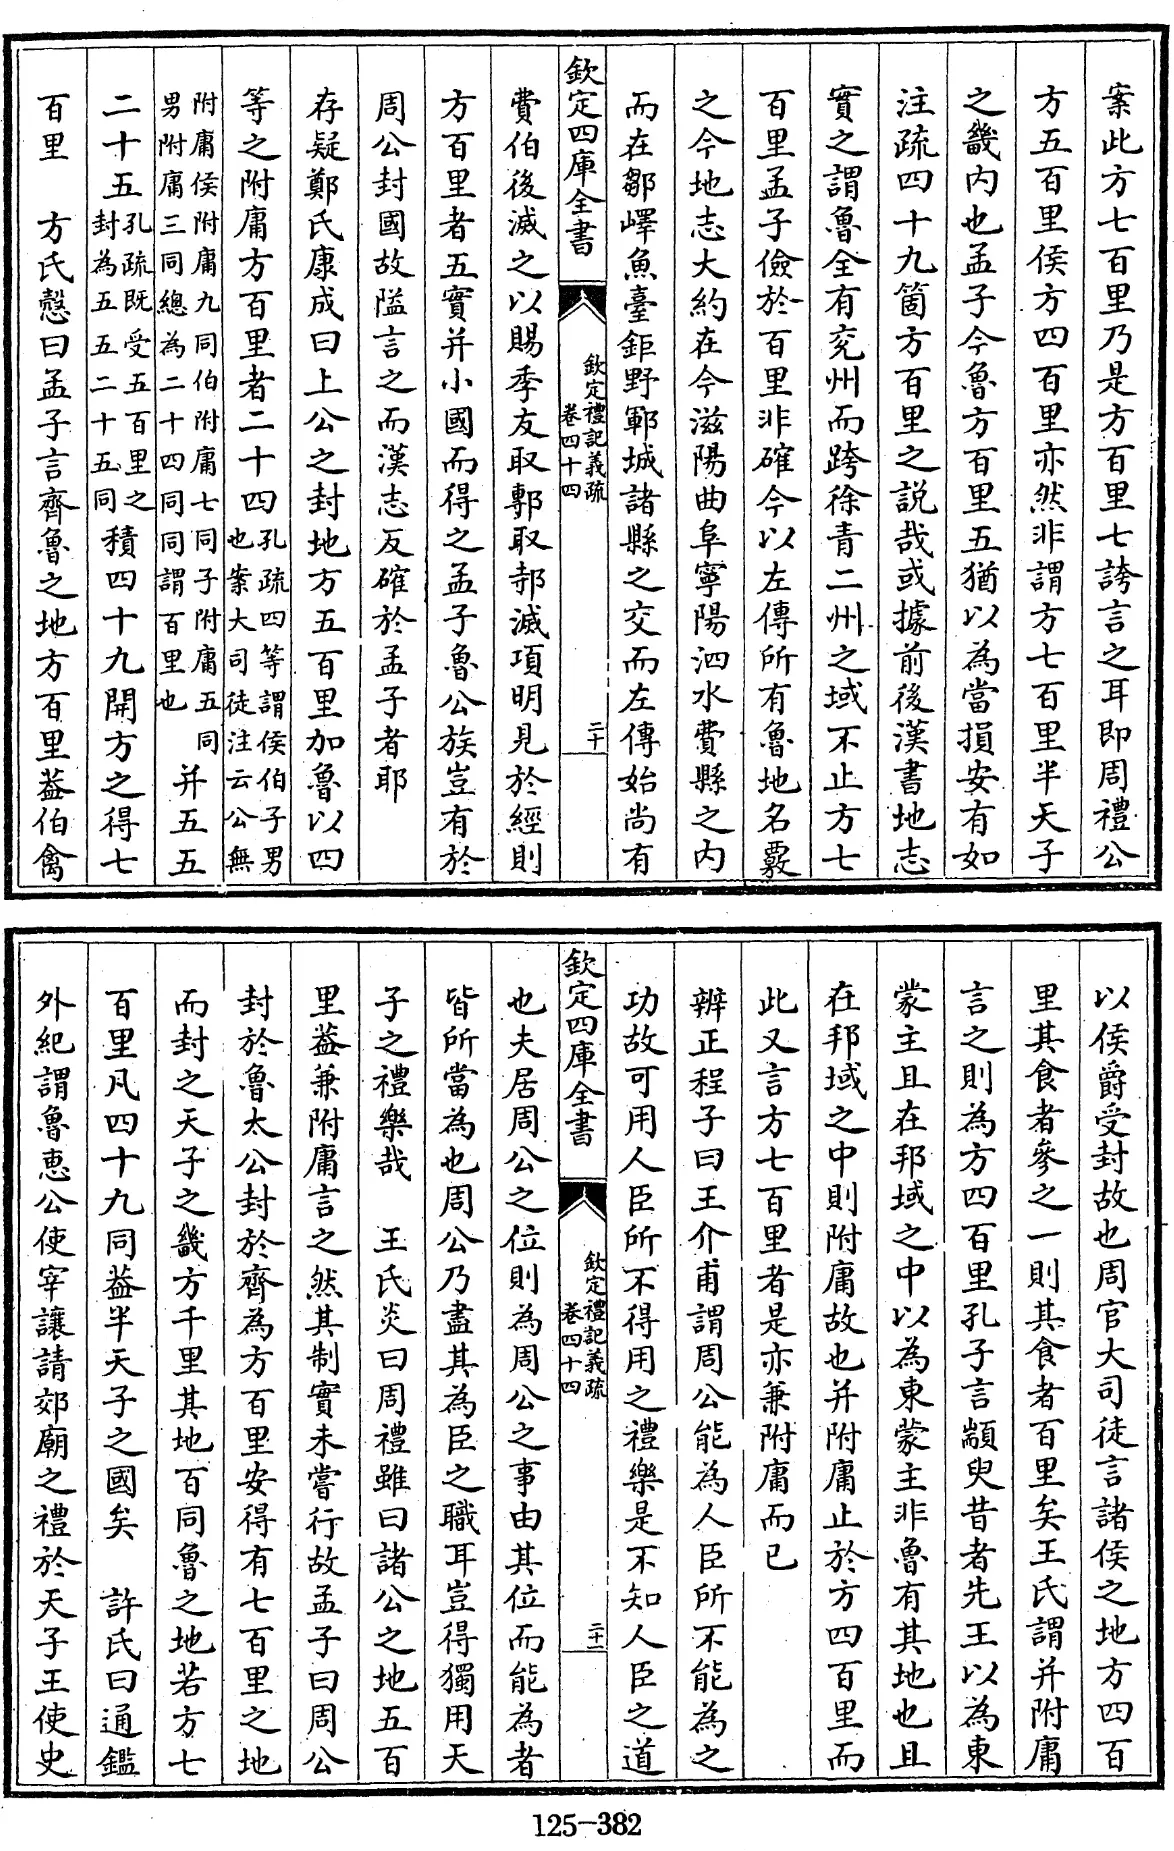 案此方七百里乃是方百里七誇言之耳即周禮公
方五百里侯方四百里亦然非謂方七百里半天子
之畿内也孟子今魯方百里五猶以為當損安有如
注疏四十九箇方百里之説哉或據前後漢書地志
實之謂魯全有兖州而跨徐青二州之域不止方七
百里孟子儉於百里非確今以左傳所有魯地名覈
之今地志大約在今滋陽曲阜寧陽泗水費縣之内
而在鄒嶧魚臺鉅野鄆城諸縣之交而左傳始尚有
欽定四庫全書
欽定禮記義疏
卷四十四
二十
費伯後滅之以賜季友取鄟取邿滅項明見於經則
方百里者五實并小國而得之孟子魯公族豈有於
周公封國故隘言之而漢志反確於孟子者耶
存疑鄭氏康成曰上公之封地方五百里加魯以四
等之附庸方百里者二十四孔疏四等謂侯伯子男
也案大司徒注云公無
附庸侯附庸九同伯附庸七同子附庸五同
男附庸三同總為二十四同同謂百里也
并五五
二十五孔疏既受五百里之
封為五五二十五同
積四十九開方之得七
百里　方氏慤曰孟子言齊魯之地方百里葢伯禽
以侯爵受封故也周官大司徒言諸侯之地方四百
里其食者參之一則其食者百里矣王氏謂并附庸
言之則為方四百里孔子言顓臾昔者先王以為東
蒙主且在邦域之中以為東蒙主非魯有其地也且
在邦域之中則附庸故也并附庸止於方四百里而
此又言方七百里者是亦兼附庸而已
辨正程子曰王介甫謂周公能為人臣所不能為之
功故可用人臣所不得用之禮樂是不知人臣之道
欽定四庫全書
欽定禮記義疏
卷四十四
二十一
也夫居周公之位則為周公之事由其位而能為者
皆所當為也周公乃盡其為臣之職耳豈得獨用天
子之禮樂哉　王氏炎曰周禮雖曰諸公之地五百
里葢兼附庸言之然其制實未嘗行故孟子曰周公
封於魯太公封於齊為方百里安得有七百里之地
而封之天子之畿方千里其地百同魯之地若方七
百里凡四十九同葢半天子之國矣　許氏曰通鑑
外紀謂魯惠公使宰讓請郊廟之禮於天子王使史
125-382